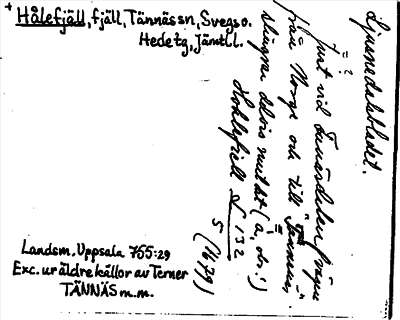 + Hålefjäll, fjäll, Tännäs sn, Svegs o.
Hede tg, Jämtl l.
Ljusnedalsbladet.
just vid Tänndalen vägen
från Norge och till Tännäs.
delvis
Hohlefiell S 132
5 (1679)
Landsm. Uppsala 755:29
Exc. ur äldre källor av Terner
TÄNNÄS m.m.